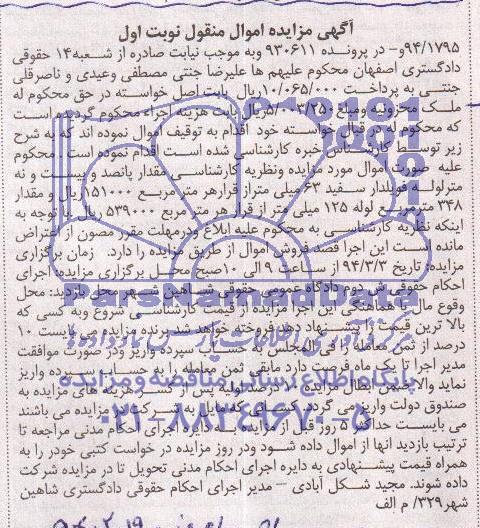 آگهی مزایده اموال منقول نوبت اول
۹۴/۱۷۹۵و– در پرونده ۹۳۰۶۱۱ وبه موجب نیابت صادره از شعبه۱۴ حقوقی
دادگستری اصفهان محکوم علیهم ها علیرضا جنتی مصطفی وعیدی و ناصرقلی
جنتی به پرداخت ۱۰/۰۶۵/۰۰۰ریال بابت اصل خواسته در حق محکوم له
ملک محزونیه ومبلغ ۵/۰۰۳/۲۵۰ریال بابت هزینه اجراء محکوم گردیده است
که محکوم له در قبال خواسته خود اقدام به توقیف اموال نموده اند که به شرح
زیر توسط کارشناس خبره کارشناسی شده است اقدام نموده است . محکوم
علیه صورت اموال مورد مزایده ونظریه کارشناسی مقدار پانصد و بیست و نه
مترلوله فویلدار سفید ۶۳ میلی متراز قرارهر متر مربع ۱۵۱۰۰۰ریال و مقدار
۳۴۸ مترمربع لوله ۱۲۵ میلی متر از قرار هر متر مربع ۵۳۹۰۰۰ ریال با توجه به
اینکه نظریه کارشناسی به محکوم علیه ابلاغ ودرمهلت مقرر مصون از اعتراض
مانده است این اجرا قصد فروش اموال از طریق مزایده را دارد. زمان برگزاری
مزایده: تاریخ ۹۴/۳/۳ از ساعت ۹ الی ۱۰صبح محل برگزاری مزایده: اجرای
احکام حقوقی ش دوم دادگاه عمومی حقوقی شاهین شهر محل بازدید: محل
وقوع مال با هماهنگی این اجرا مزایده از قیمت کارشناسی شروع وبه کسی که
بالا ترین قیمت را پیشنهاد دهد فروخته خواهد شد برنده مزایده می بایست ۱۰
درصد از ثمن معامله را فی المجلس به حساب سپرده واریز ودر صورت موافقت
مدیر اجرا تا یک ماه فرصت دارد مابقی ثمن معامله را به حساب سپرده واریز
نماید والا ضمن ابطال مزایده ۱۰ درصد اولیه پس از کسر هزینه های مزایده به
صندوق دولت واریز می گردد. کسانی که مایل به شرکت در مزایده می باشند
می بایست حداقل ۵ روز قبل از مزایده به دایره اجرای احکام مدنی مراجعه تا
ترتیب بازدید انها از اموال داده شود ودر روز مزایده در خواست کتبی خود را به
همراه قیمت پیشنهادی به دایره اجرای احکام مدنی تحویل تا در مزایده شرکت
داده شوند. مجید شکل آبادی – مدیر اجرای احکام حقوقی دادگستری شاهین
شهر۳۲۹/ م الف
ParsNamadData
پایگاه اطلاع رسانی مناقصه و مزایده
۰۲۱-۸۸۳۴۹۶۷۰-۵